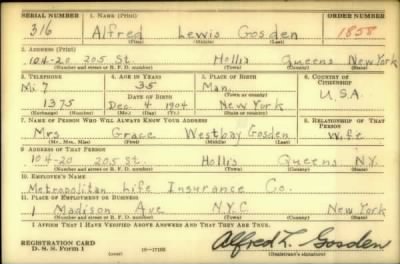 SERIAL NUMBER 1. NAME (Print) ORDER NUMBER
316 Alfred Lewis Gosden 1858
(First) (Middle) (Last)
2. ADDRESS (Print)
104-20 205 St. Hollis Queens New York
(Number and street or R. F. D. number) (Town) (County) (State)
3. TELEPHONE 4. AGE IN YEARS 5. PLACE OF BIRTH 6. COUNTRY OF CITIZENSHIP
Mi. 7 35 Man.
DATE OF BIRTH (Town or county) U.S.A.
1375 Dec. 4 1904 New York
(Exchange) (Number) (Mo.) (Day) (Yr.) (State or country)
7. NAME OF PERSON WHO WILL ALWAYS KNOW YOUR ADDRESS 8. RELATIONSHIP OF THAT PERSON
Mrs Grace Westbay Gosden Wife
(Mr., Mrs., Miss) (First) (Middle) (Last)
9. ADDRESS OF THAT PERSON
104-20 205 St. Hollis Queens N.Y.
(Number and street or R. F. D. number) (Town) (County) (State)
10. EMPLOYER'S NAME
Metropolitan Life Insurance Co.
11. PLACE OF EMPLOYMENT OR BUSINESS
1 Madison Ave N.Y.C New York
(Number and street or R. F. D. number) (Town) (County) (State)
I AFFIRM THAT I HAVE VERIFIED ABOVE ANSWERS AND THAT THEY ARE TRUE.
REGISTRATION CARD
D. S. S. Form 1 (over) 16-17105 Alfred L. Gosden
(Registrant's signature)